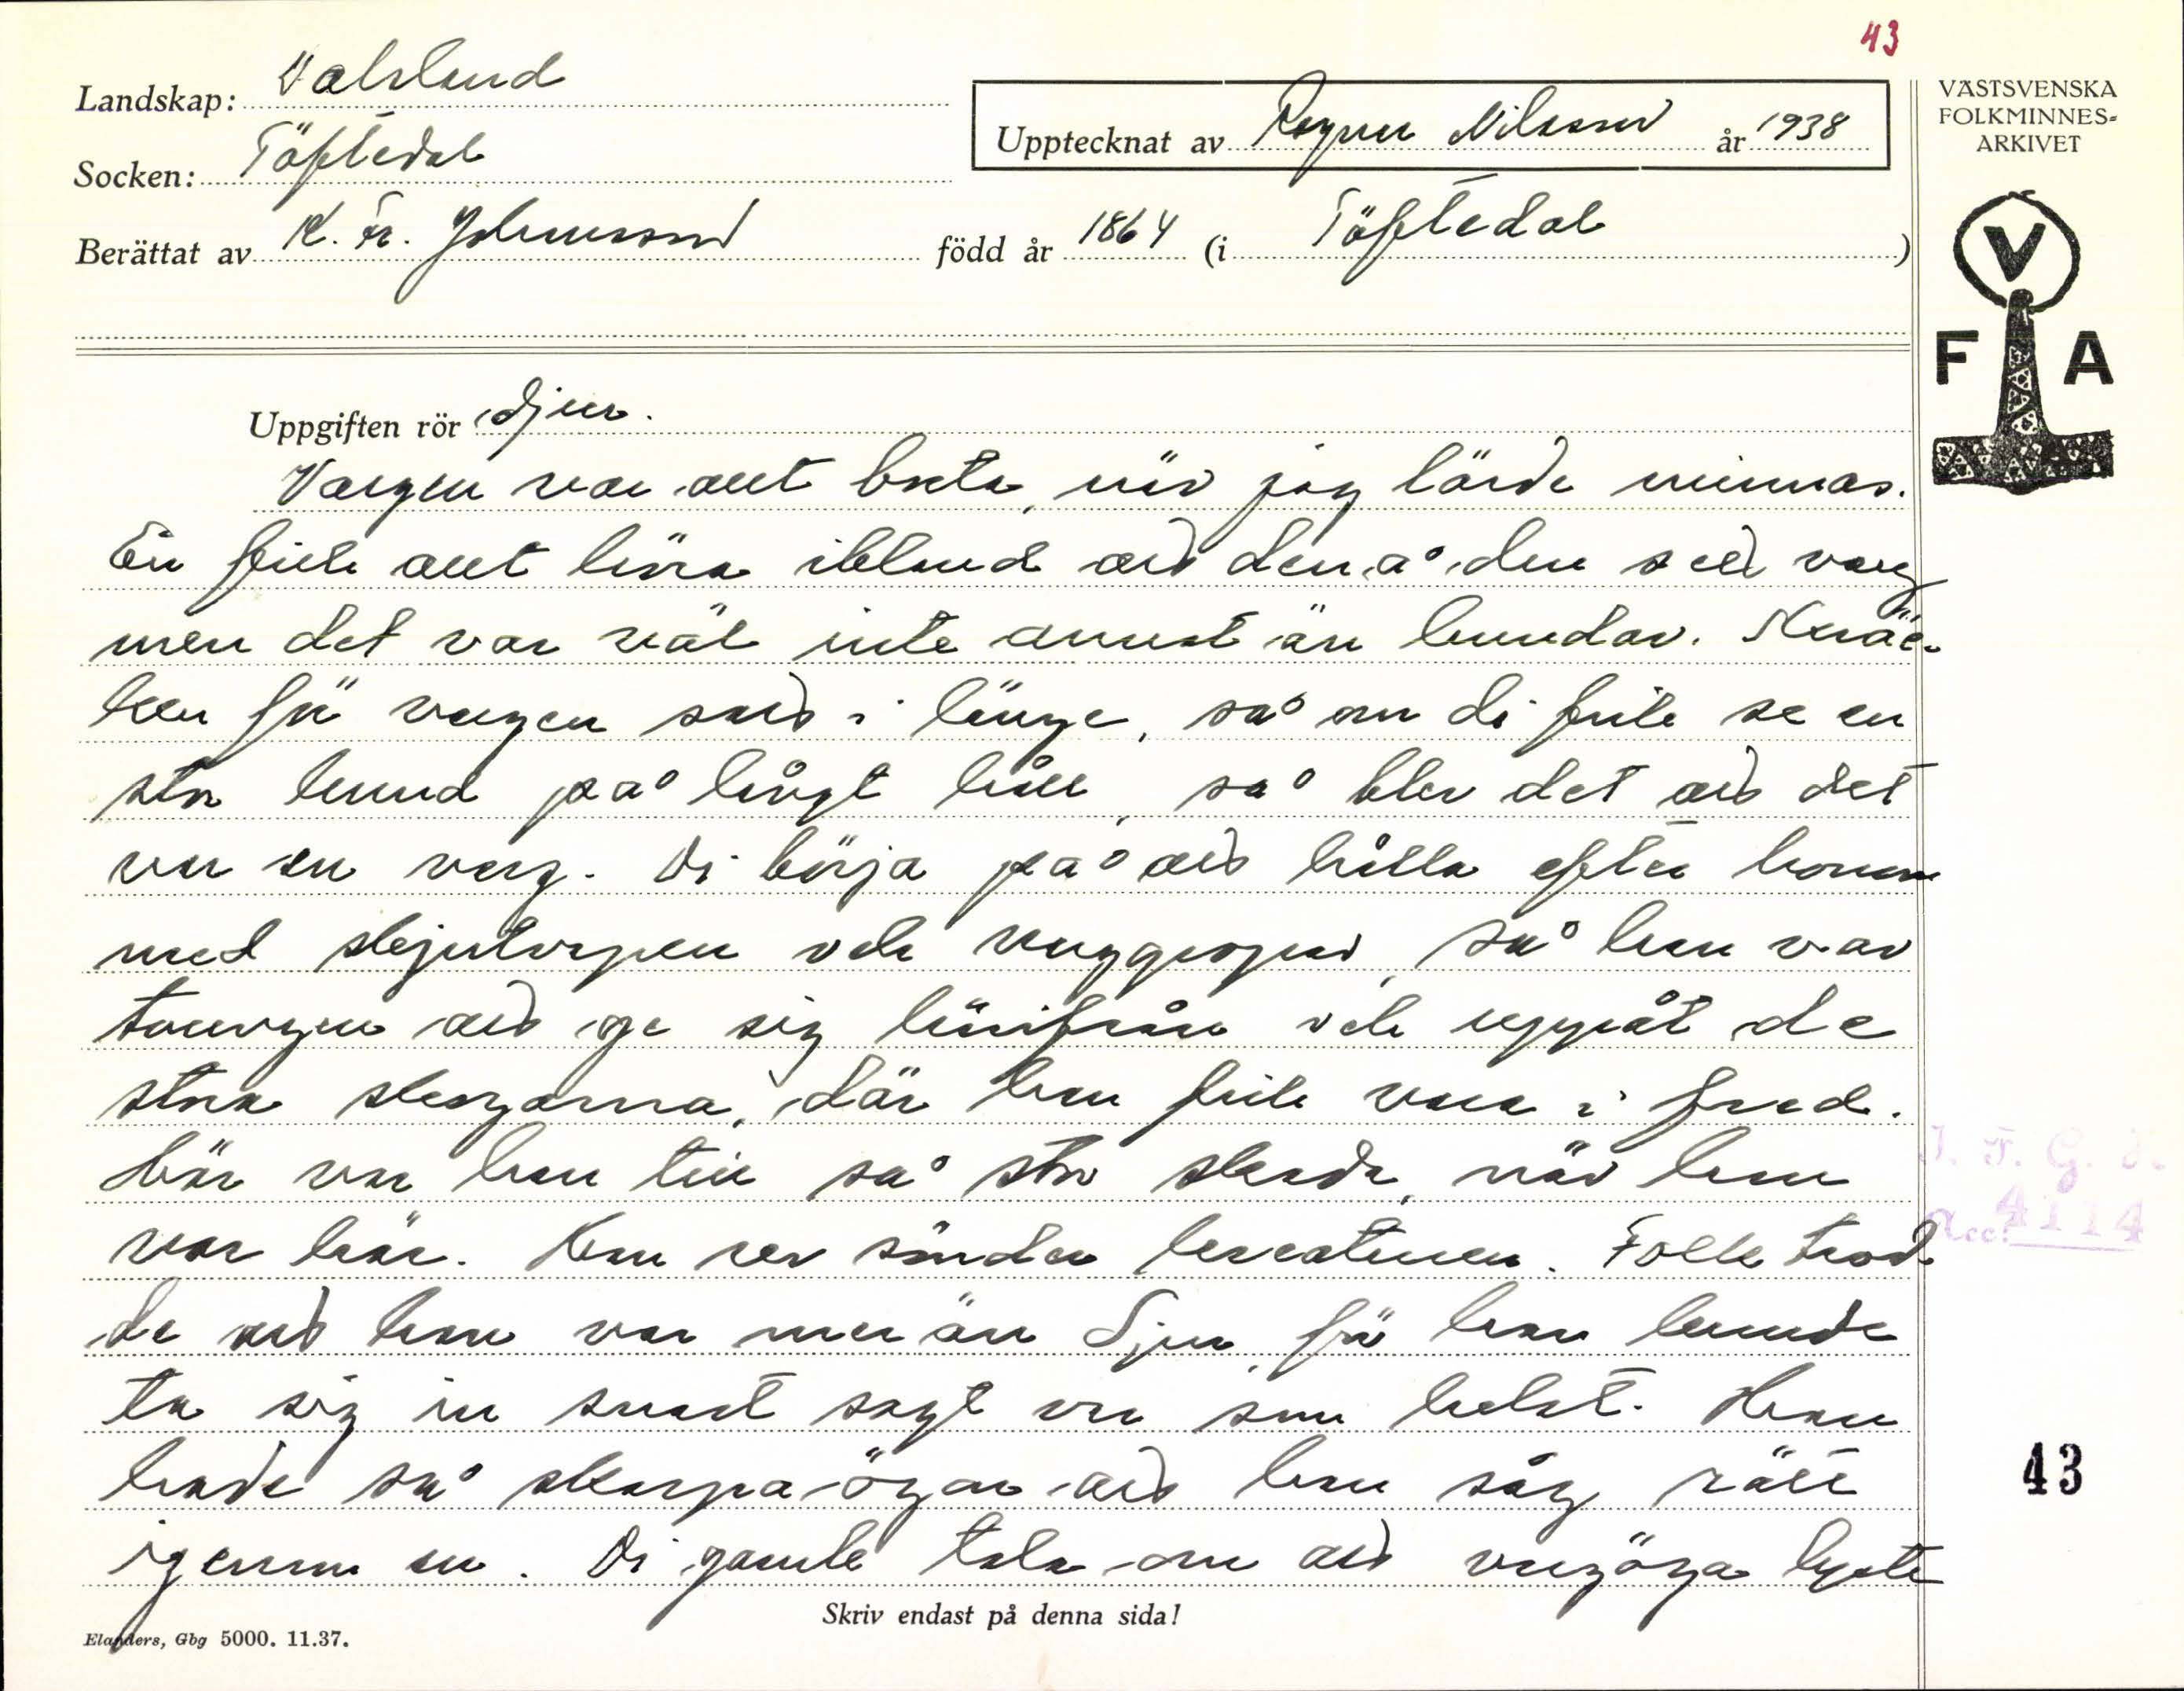 43
Landskap: Dalsland
VÄSTSVENSKA
FOLKMINNES-
ARKIVET
Upptecknat av Ragnar Nilsson år 1938
Socken: Töftedal
Berättat av K. Fr. Johansson född år 1864 (i Töftedal)
V
F A
Uppgiften rör djur.
Vargen var allt borta, när jag lärde minnas.
En fick allt höra ibland att den å den sett varg
men det var väl inte annat än hundar. Skräc-
ken för vargen satt i länge, så om di fick se en
stor hund på långt håll, så blev det att det
var en varg. Di börja på att hålla efter honom
med skjutvapen och varggropar, så han var
tvungen att ge sig härifrån och uppåt de
stora skogarna, där han fick vara i fred.
Här var han till så stor skada, när han
var här. Han rev sönder kreaturen. Folk trod-
de att han var mer än djur, för han kunde
ta sig in snart sagt var som helst. Han
hade så skarpa ögon att han såg rätt
igenom en. Di gamle tala om att vargöga lyste
I. F. G. H.
Acc. 4114
43
Skriv endast på denna sida!
Elanders, Gbg 5000. 11.37.